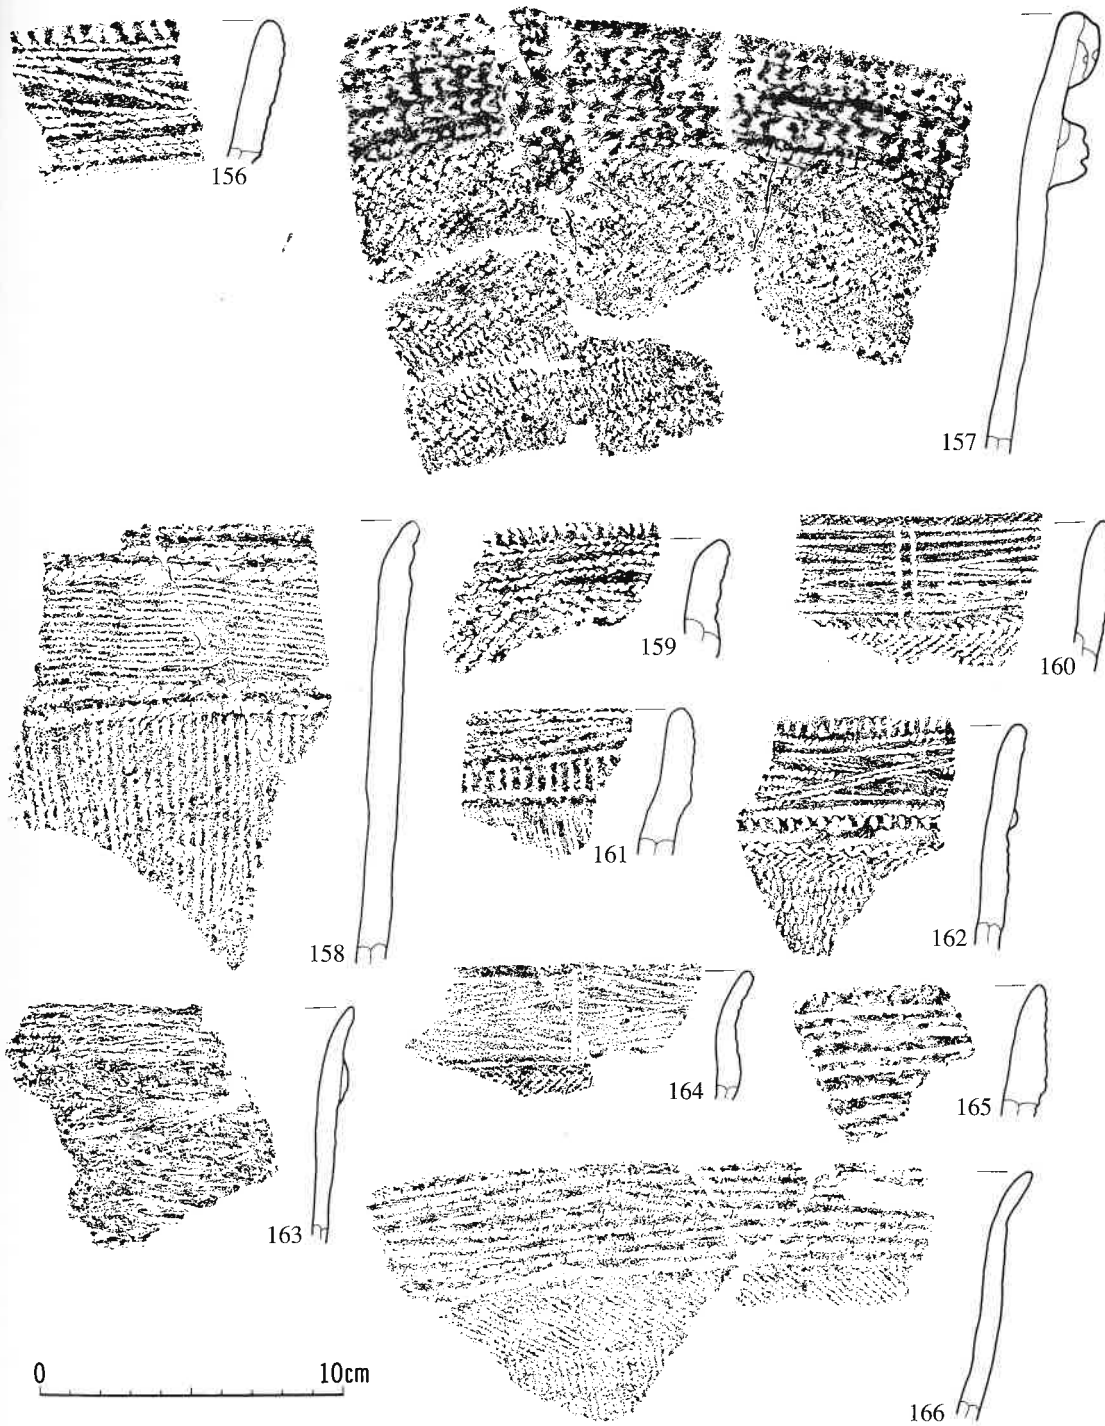 156
157
158
159
160
161
162
163
164
165
166
0 10cm